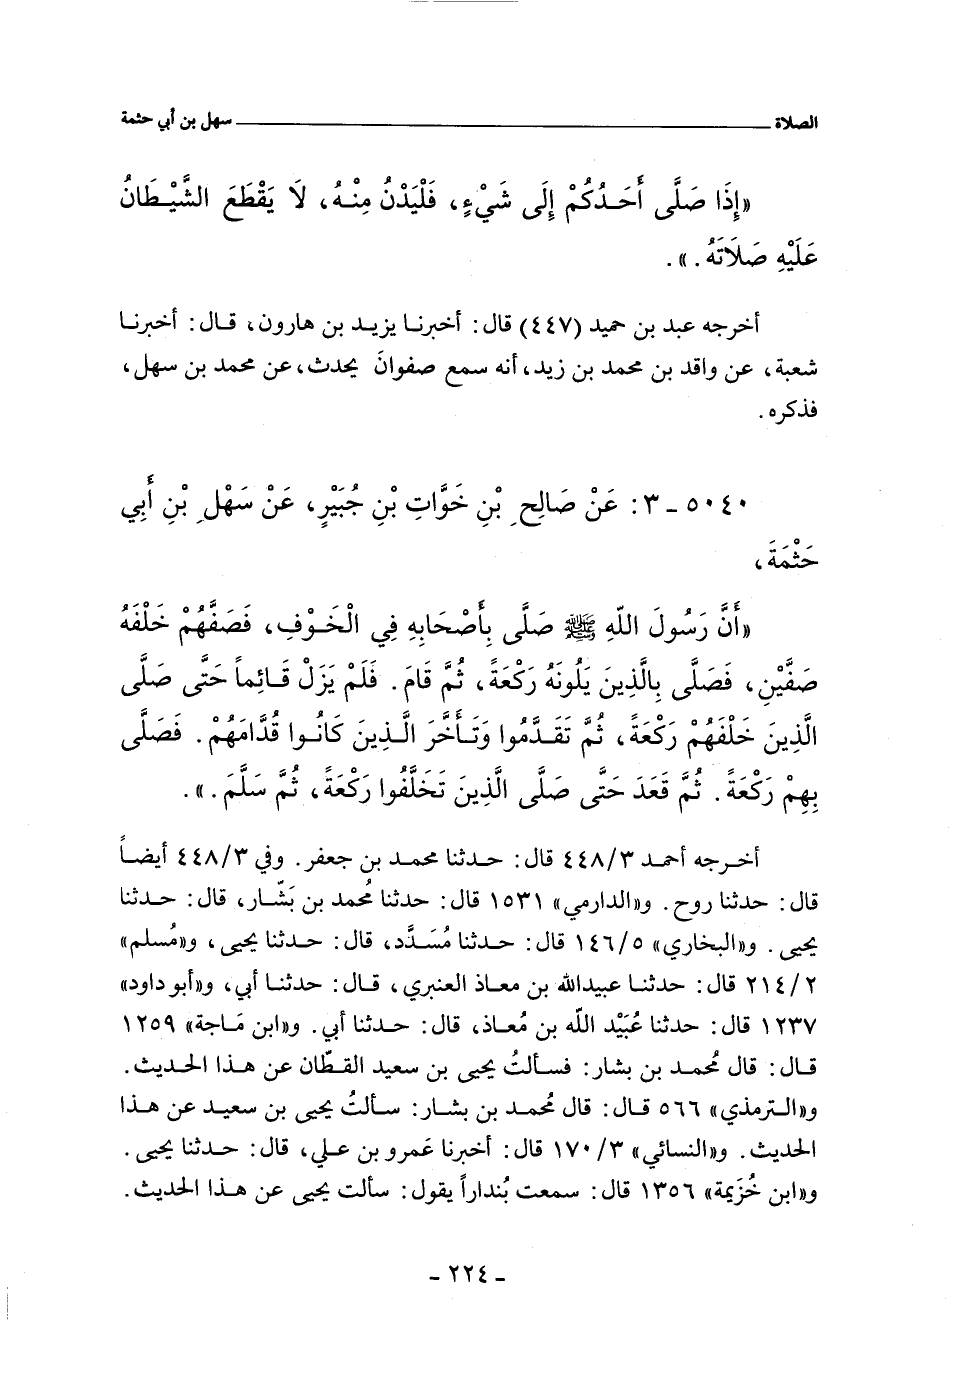 الصلاة ــــــ سهل بن أبي حثمة
«إِذَا صَلَّى أَحَدُكُمْ إِلَى شَيْءٍ، فَلْيَدْنُ مِنْهُ، لَا يَقْطَعَ الشَّيْطَانُ
عَلَيْهِ صَلَاتَهُ.».
أخرجه عبد بن حميد (٤٤٧) قال: أخبرنا يزيد بن هارون، قال: أخبرنا
شعبة، عن واقد بن محمد بن زيد، أنه سمع صفوانَ يحدث، عن محمد بن سهل،
فذكره.
٥٠٤٠ - ٣: عَنْ صَالِحِ بْنِ خَوَّاتِ بْنِ جُبَيْرٍ، عَنْ سَهْلِ بْنِ أَبِي
حَثْمَةَ،
«أَنَّ رَسُولَ اللّهِ ﷺ صَلَّى بِأَصْحَابِهِ فِي الْخَوْفِ، فَصَفَّهُمْ خَلْفَهُ
صَفَّيْنِ، فَصَلَّى بِالَّذِينَ يَلُونَهُ رَكْعَةً، ثُمَّ قَامَ. فَلَمْ يَزَلْ قَائِماً حَتَّى صَلَّى
الَّذِينَ خَلْفَهُمْ رَكْعَةً، ثُمَّ تَقَدَّمُوا وَتَأَخَّرَ الَّذِينَ كَانُوا قُدَّامَهُمْ. فَصَلَّى
بِهِمْ رَكْعَةً. ثُمَّ قَعَدَ حَتَّى صَلَّى الَّذِينَ تَخَلَّفُوا رَكْعَةً، ثُمَّ سَلَّمَ.».
أخرجه أحمد ٤٤٨/٣ قال: حدثنا محمد بن جعفر. وفي ٤٤٨/٣ أيضاً
قال: حدثنا روح. و«الدارمي» ١٥٣١ قال: حدثنا مُحمد بن بَشّار، قال: حدثنا
يحيى. و«البخاري» ١٤٦/٥ قال: حدثنا مُسَدَّد، قال: حدثنا يحيى، و«مُسلم»
٢١٤/٢ قال: حدثنا عبيدالله بن معاذ العنبري، قال: حدثنا أبي، و«أبو داود»
١٢٣٧ قال: حدثنا عُبَيْد اللّه بن مُعاذ، قال: حدثنا أبي. و«ابن مَاجة» ١٢٥٩
قال: قال مُحمد بن بشار: فسألتُ يحيى بن سعيد القطّان عن هذا الحديث.
و«الترمذي» ٥٦٦ قال: قال مُحمد بن بشار: سألتُ يحيى بن سعيد عن هذا
الحديث. و«النسائي» ١٧٠/٣ قال: أخبرنا عَمرو بن علي، قال: حدثنا يحيى.
و«ابن خُزَيمة» ١٣٥٦ قال: سمعت بُنداراً يقول: سألت يحيى عن هذا الحديث.
- ٢٢٤ -